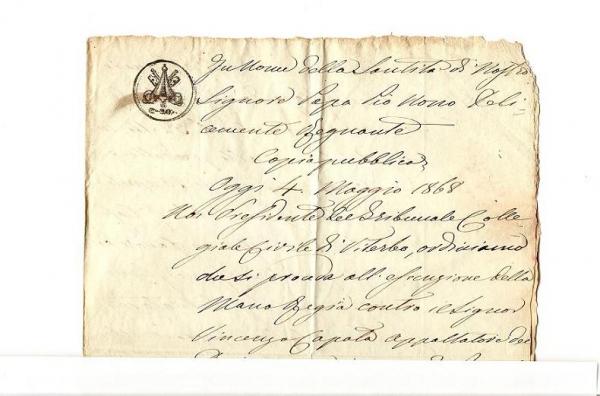 In Nome della Santità di Nostro
Signore Papa Pio Nono Feli=
cemente Regnante
Copia pubblica
Oggi 4. Maggio 1868
Noi Presidente del Tribunale Colle=
giale Civile di Viterbo, ordiniamo
che si proceda all'esecuzione della
Mano Regia contro il Signor
Vincenzo Capata appaltatore dei